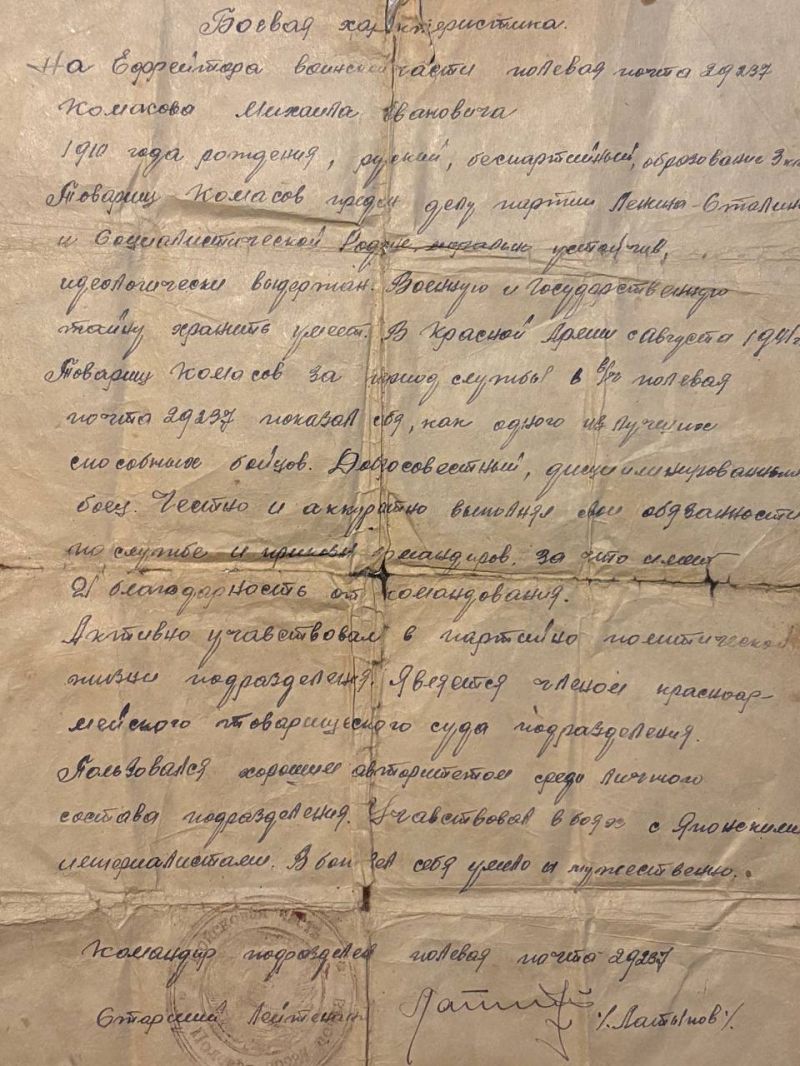 Боевая характеристика.
На Ефрейтора воинской части полевая почта 29237
Комасова Михаила Ивановича
1910 года рождения, руский, беспартийный, образование 3 кл
Товарищ Комасов предан делу партии Ленина-Сталина
и Социалистической Родине, морально устойчив,
идеологически выдержан. Военную и Государственную
тайну хранить умеет. В Красной Армии с августа 1941 г
Товарищ Комасов за период службы в в/ч полевая
почта 29237 показал себя, как одного из лучших
способных бойцов. Добросовестный, дисциплинированный
боец. Честно и аккуратно выполнял свои обязанности
по службе и приказы командиров. за что имеет
благодарность от командования.
Активно учавствовал в партийно политической
жизни подразделения. Является членом красноар-
мейского товарищеского суда подразделения.
Пользовался хорошим авторитетом среди личного
состава подразделения. Учавствовал в боях с Японскими
империалистами. В бою вел себя умело и мужественно.
Командир подразделен полевая почта 29237
Старший Лейтенант /Латыпов/